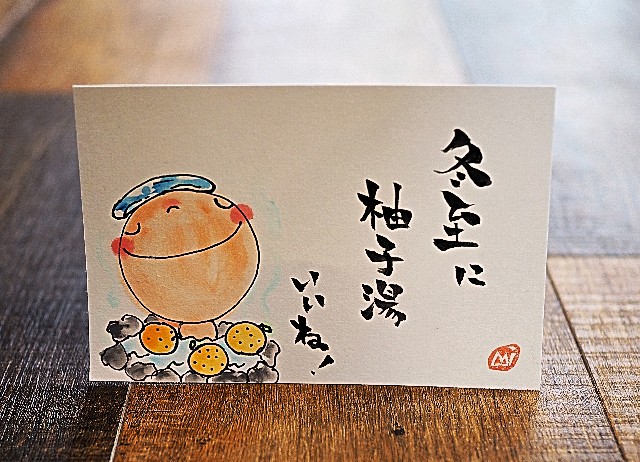 冬至に
柚子湯
いいね!